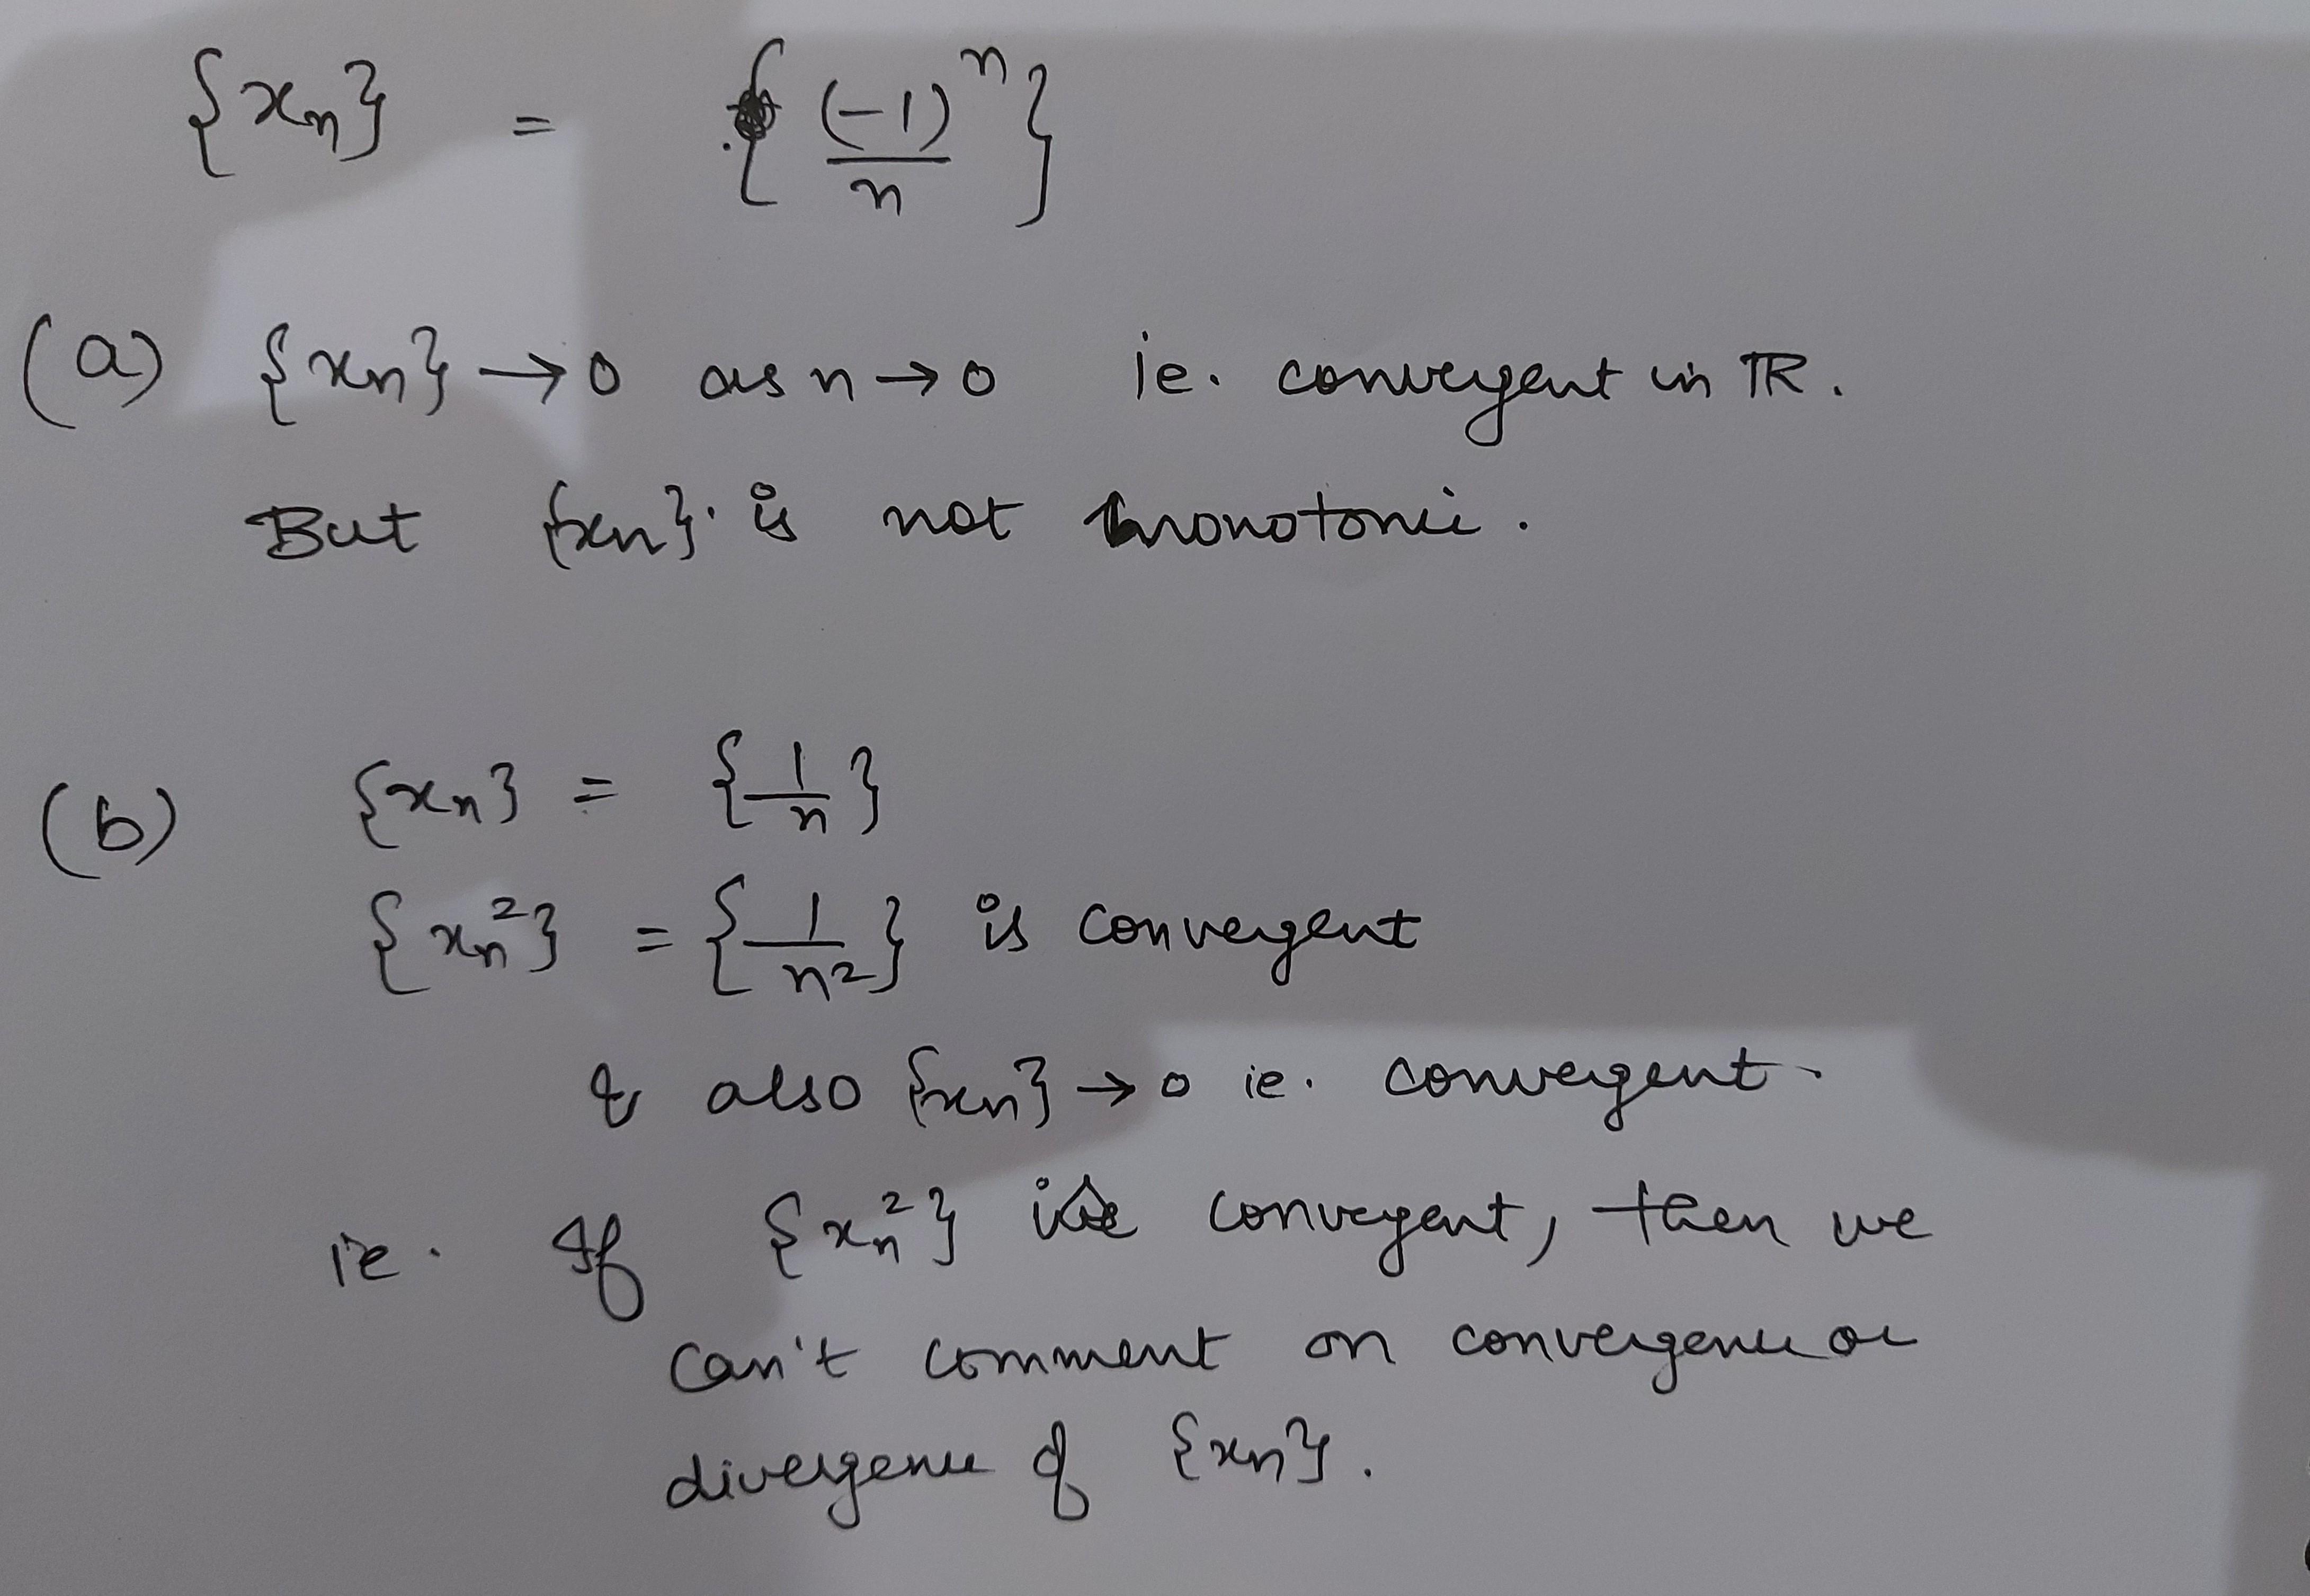 {xn} = {(-1)^n/n}
(a) {xn} → 0 as n → 0 ie. convergent in ℝ.
But {xn} is not monotonic.
(b) {xn} = {1/n}
{xn²} = {1/n²} is convergent
& also {xn} → 0 ie. convergent.
ie. If {xn²} is convergent, then we
can't comment on convergence or
divergence of {xn}.